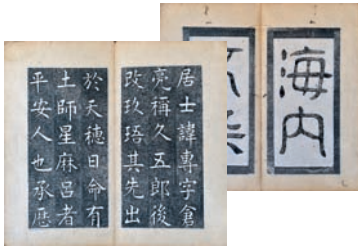 海内
居士諱專字倉
亮稱久五郎後
改玖珸其先出
於天穗日命有
土師星麻呂者
平安人也承